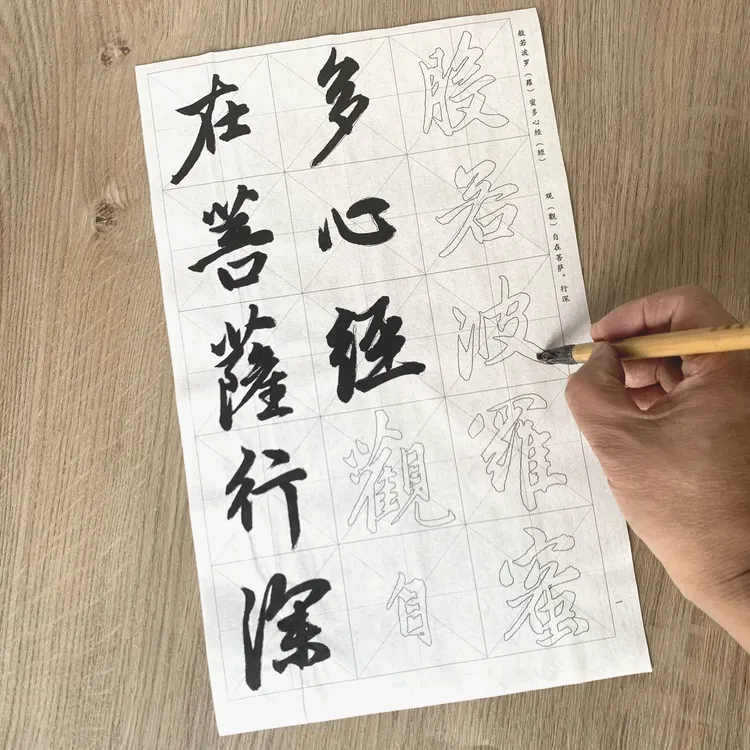 般若波罗（羅）蜜多心经（經）　观（觀）自在菩萨。行深
一
般若波羅蜜
多心經觀自
在菩薩行深